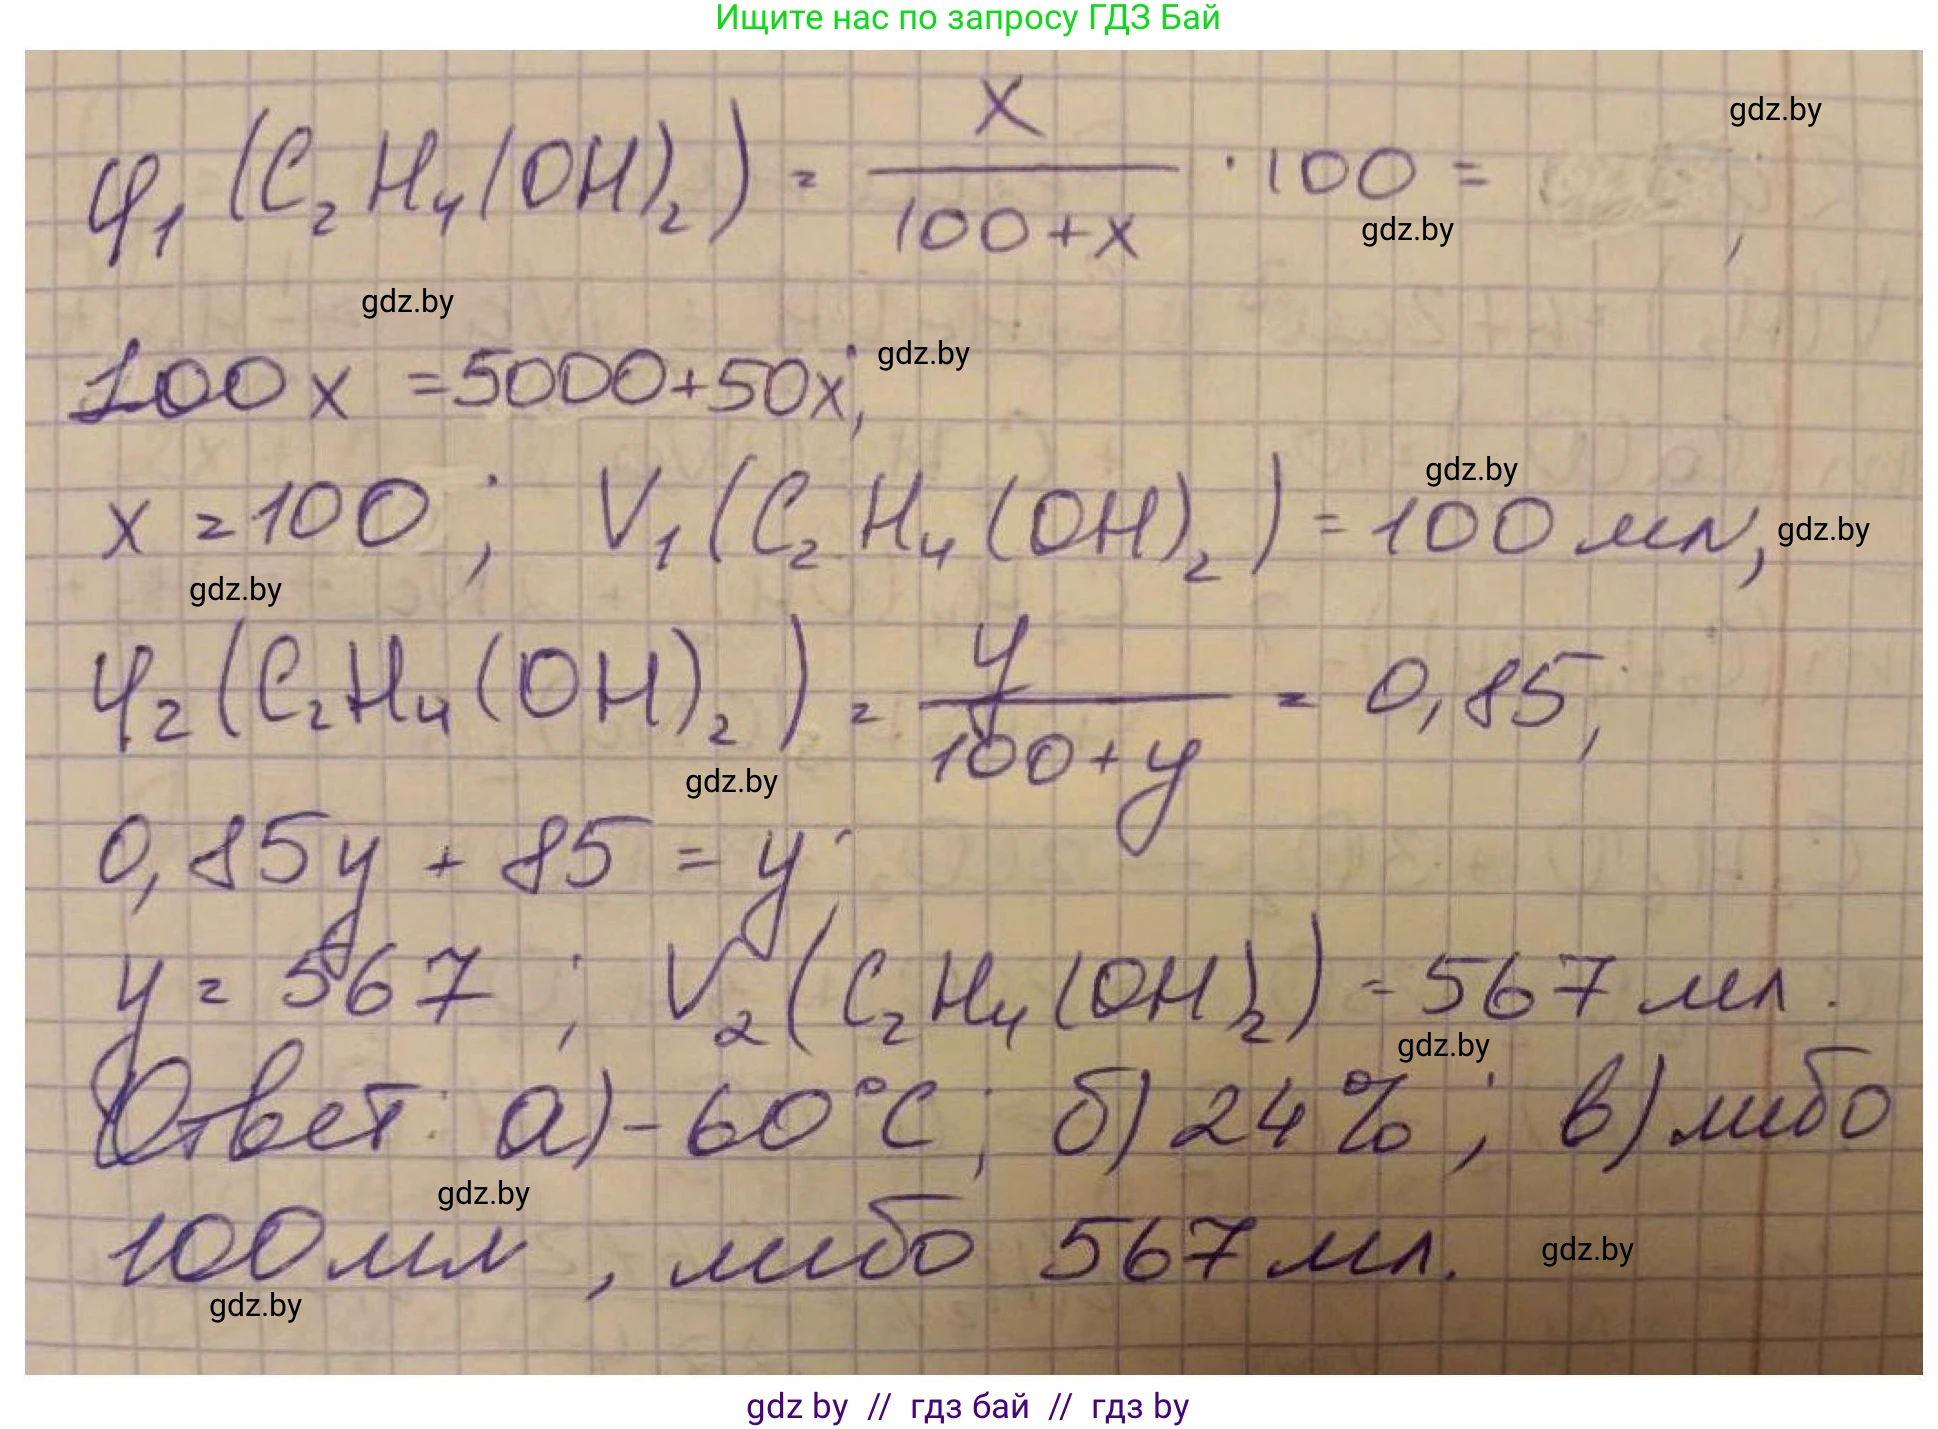 Ищите нас по запросу ГДЗ Бай
gdz.by
φ₁ (C₂H₄(OH)₂) = x / (100 + x) · 100 = ;
gdz.by
gdz.by
100x = 5000 + 50x;
gdz.by
x = 100 ; V₁ (C₂H₄(OH)₂) = 100 мл,
gdz.by
gdz.by
gdz.by
φ₂ (C₂H₄(OH)₂) = y / (100 + y) = 0,85;
gdz.by
0,85y + 85 = y;
y = 567 ; V₂ (C₂H₄(OH)₂) = 567 мл.
gdz.by
Ответ: а) -60°C ; б) 24% ; в) либо
gdz.by
100 мл , либо 567 мл.
gdz.by
gdz.by
gdz by // гдз бай // гдз by